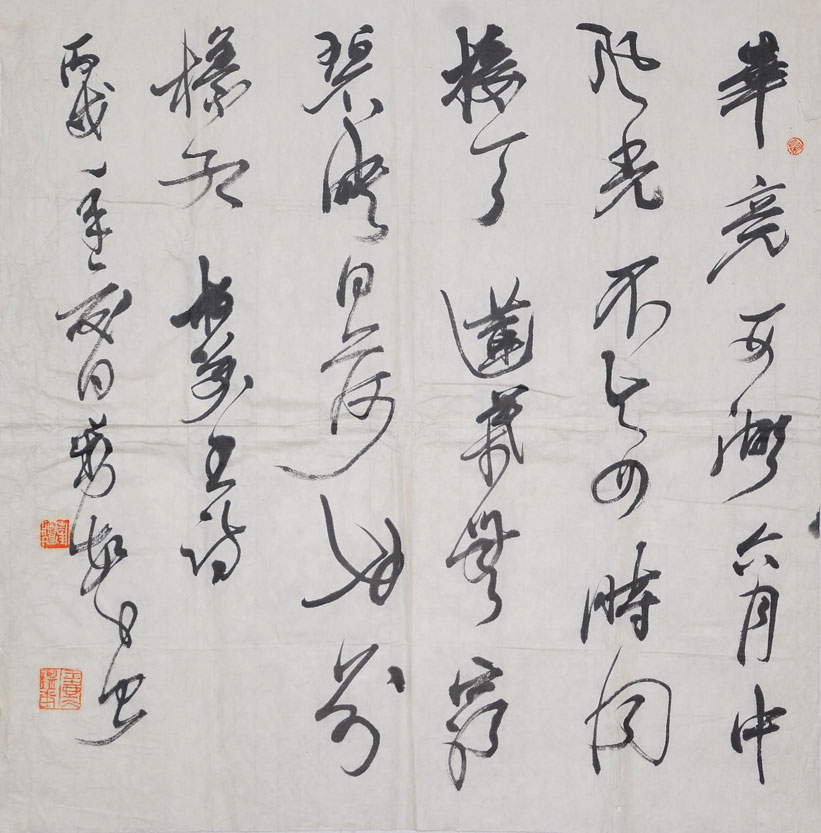 畢竟西湖六月中
风光不与四時同
接天蓮葉無窮
碧映日荷花别
樣红 楊萬里詩
丙戌年夏日 书